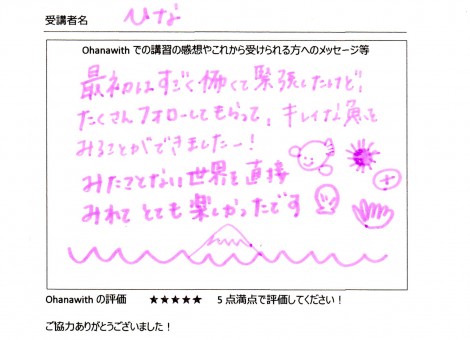 受講者名 ひな
Ohanawith での講習の感想やこれから受けられる方へのメッセージ等
最初はすごく怖くて緊張したけど、
たくさんフォローしてもらって、キレイな魚をみ
みることができましたー!
みたことない世界を直接
みれて とても楽しかったです
Ohanawith の評価 ★★★★★ 5点満点で評価してください!
ご協力ありがとうございました!